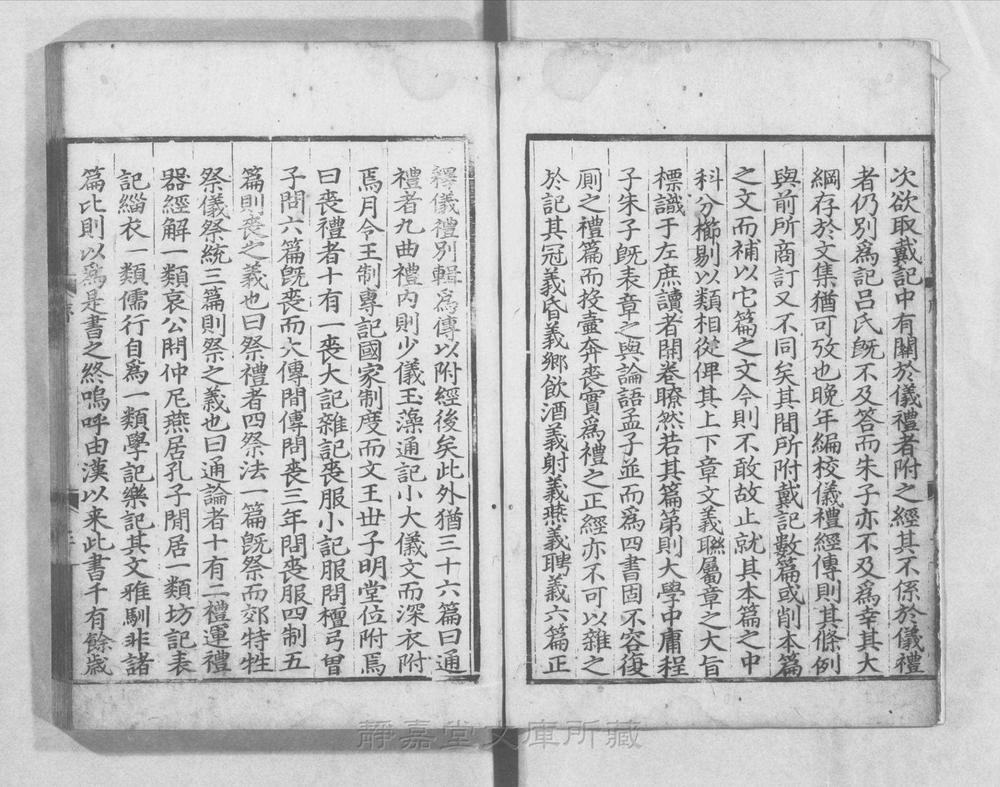 次欲取戴記中有關於儀禮者附之經其不係於儀禮
者仍別爲記呂氏既不及答而朱子亦不及爲幸其大
綱存於文集猶可攷也晚年編校儀禮經傳則其條例
與前所商訂又不同矣其間所附戴記數篇或削本篇
之文而補以它篇之文今則不敢故止就其本篇之中
科分櫛剔以類相從俾其上下章文義聮屬章之大旨
標識于左庶讀者開卷瞭然若其篇第則大學中庸程
子朱子既表章之與論語孟子並而爲四書固不容復
厠之禮篇而投壷奔喪實爲禮之正經亦不可以雜之
於記其冠義昏義鄉飲酒義射義燕義聘義六篇正
釋儀禮別輯爲傳以附經後矣此外猶三十六篇曰通
禮者九曲禮內則少儀玉藻通記小大儀文而深衣附
焉月令王制專記國家制度而文王丗子明堂位附焉
曰喪禮者十有一喪大記雜記喪服小記服問檀弓曽
子問六篇既喪而大傳間傳問喪三年問喪服四制五
篇則喪之義也曰祭禮者四祭法一篇既祭而郊特牲
祭儀祭統三篇則祭之義也曰通論者十有二禮運禮
器經解一類哀公問仲尼燕居孔子閒居一類坊記表
記緇衣一類儒行自爲一類學記樂記其文雅馴非諸
篇比則以爲是書之終嗚呼由漢以来此書千有餘歳
靜嘉堂文庫所藏